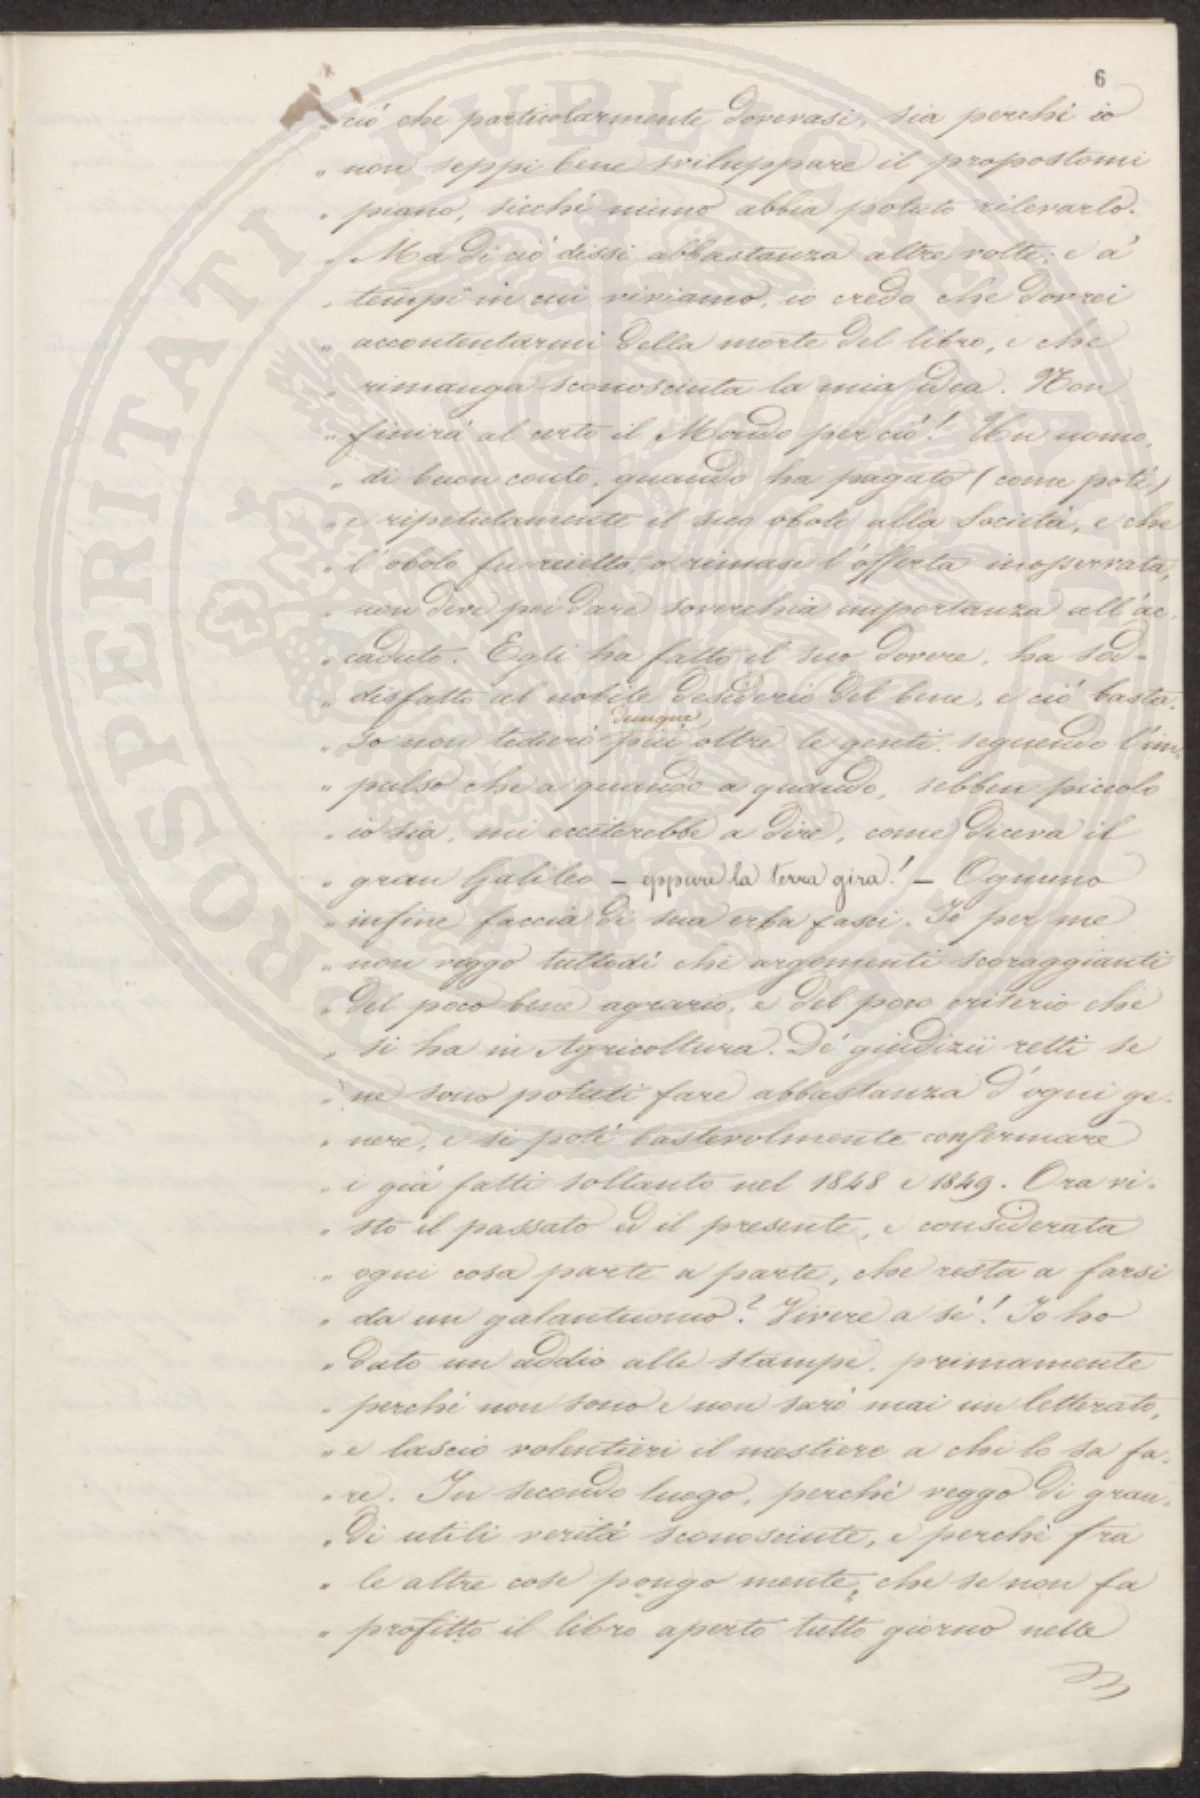 6
" ciò che particolarmente dovevasi, sia perchè io
" non seppi bene sviluppare il propostomi
" piano, sicchè niuno abbia potuto rilevarlo.
" Ma di ciò dissi abbastanza altre volte; e a'
" tempi in cui viviamo, io credo che dovrei
" accontentarmi della morte del libro, e che
" rimanga sconosciuta la mia idea. Non
" finirà al certo il Mondo per ciò! Un uomo,
" di buon conto, quando ha pagato (come potè)
" e ripetutamente il suo obolo alla Società, e che
" l'obolo fu reietto, o rimase l'offerta inosservata,
" non deve poi dare soverchia importanza all'ac-
" caduto. Egli ha fatto il suo dovere, ha sod-
" disfatto al nobile desiderio del bene, e ciò basta.
dunque,
" Io non tedierò più oltre le genti, seguendo l'im-
" pulso che a quando a quando, sebben piccolo
" io sia, mi ecciterebbe a dire, come diceva il
" gran Galileo – eppure la terra gira! – Ognuno
" infine faccia di sua erba fasci. Io per me
" non veggo tuttodì che argomenti scoraggianti
" del poco bene agrario, e del poco criterio che
" si ha in Agricoltura. De' giudizii retti se
" ne sono potuti fare abbastanza d'ogni ge-
" nere, e si potè bastevolmente confermare
" i già fatti soltanto nel 1848 e 1849. Ora vi-
" sto il passato ed il presente, e considerata
" ogni cosa parte a parte, che resta a farsi
" da un galantuomo? Vivere a sè! Io ho
" dato un addio alle stampe, primamente
" perchè non sono e non sarò mai un letterato,
" e lascio volentieri il mestiere a chi lo sa fa-
" re. In secondo luogo, perchè veggo di gran-
" di utili verità sconosciute, e perchè fra
" le altre cose pongo mente, che se non fa
" profitto il libro aperto tutto giorno nelle
PROSPERITATI PVBLICAE